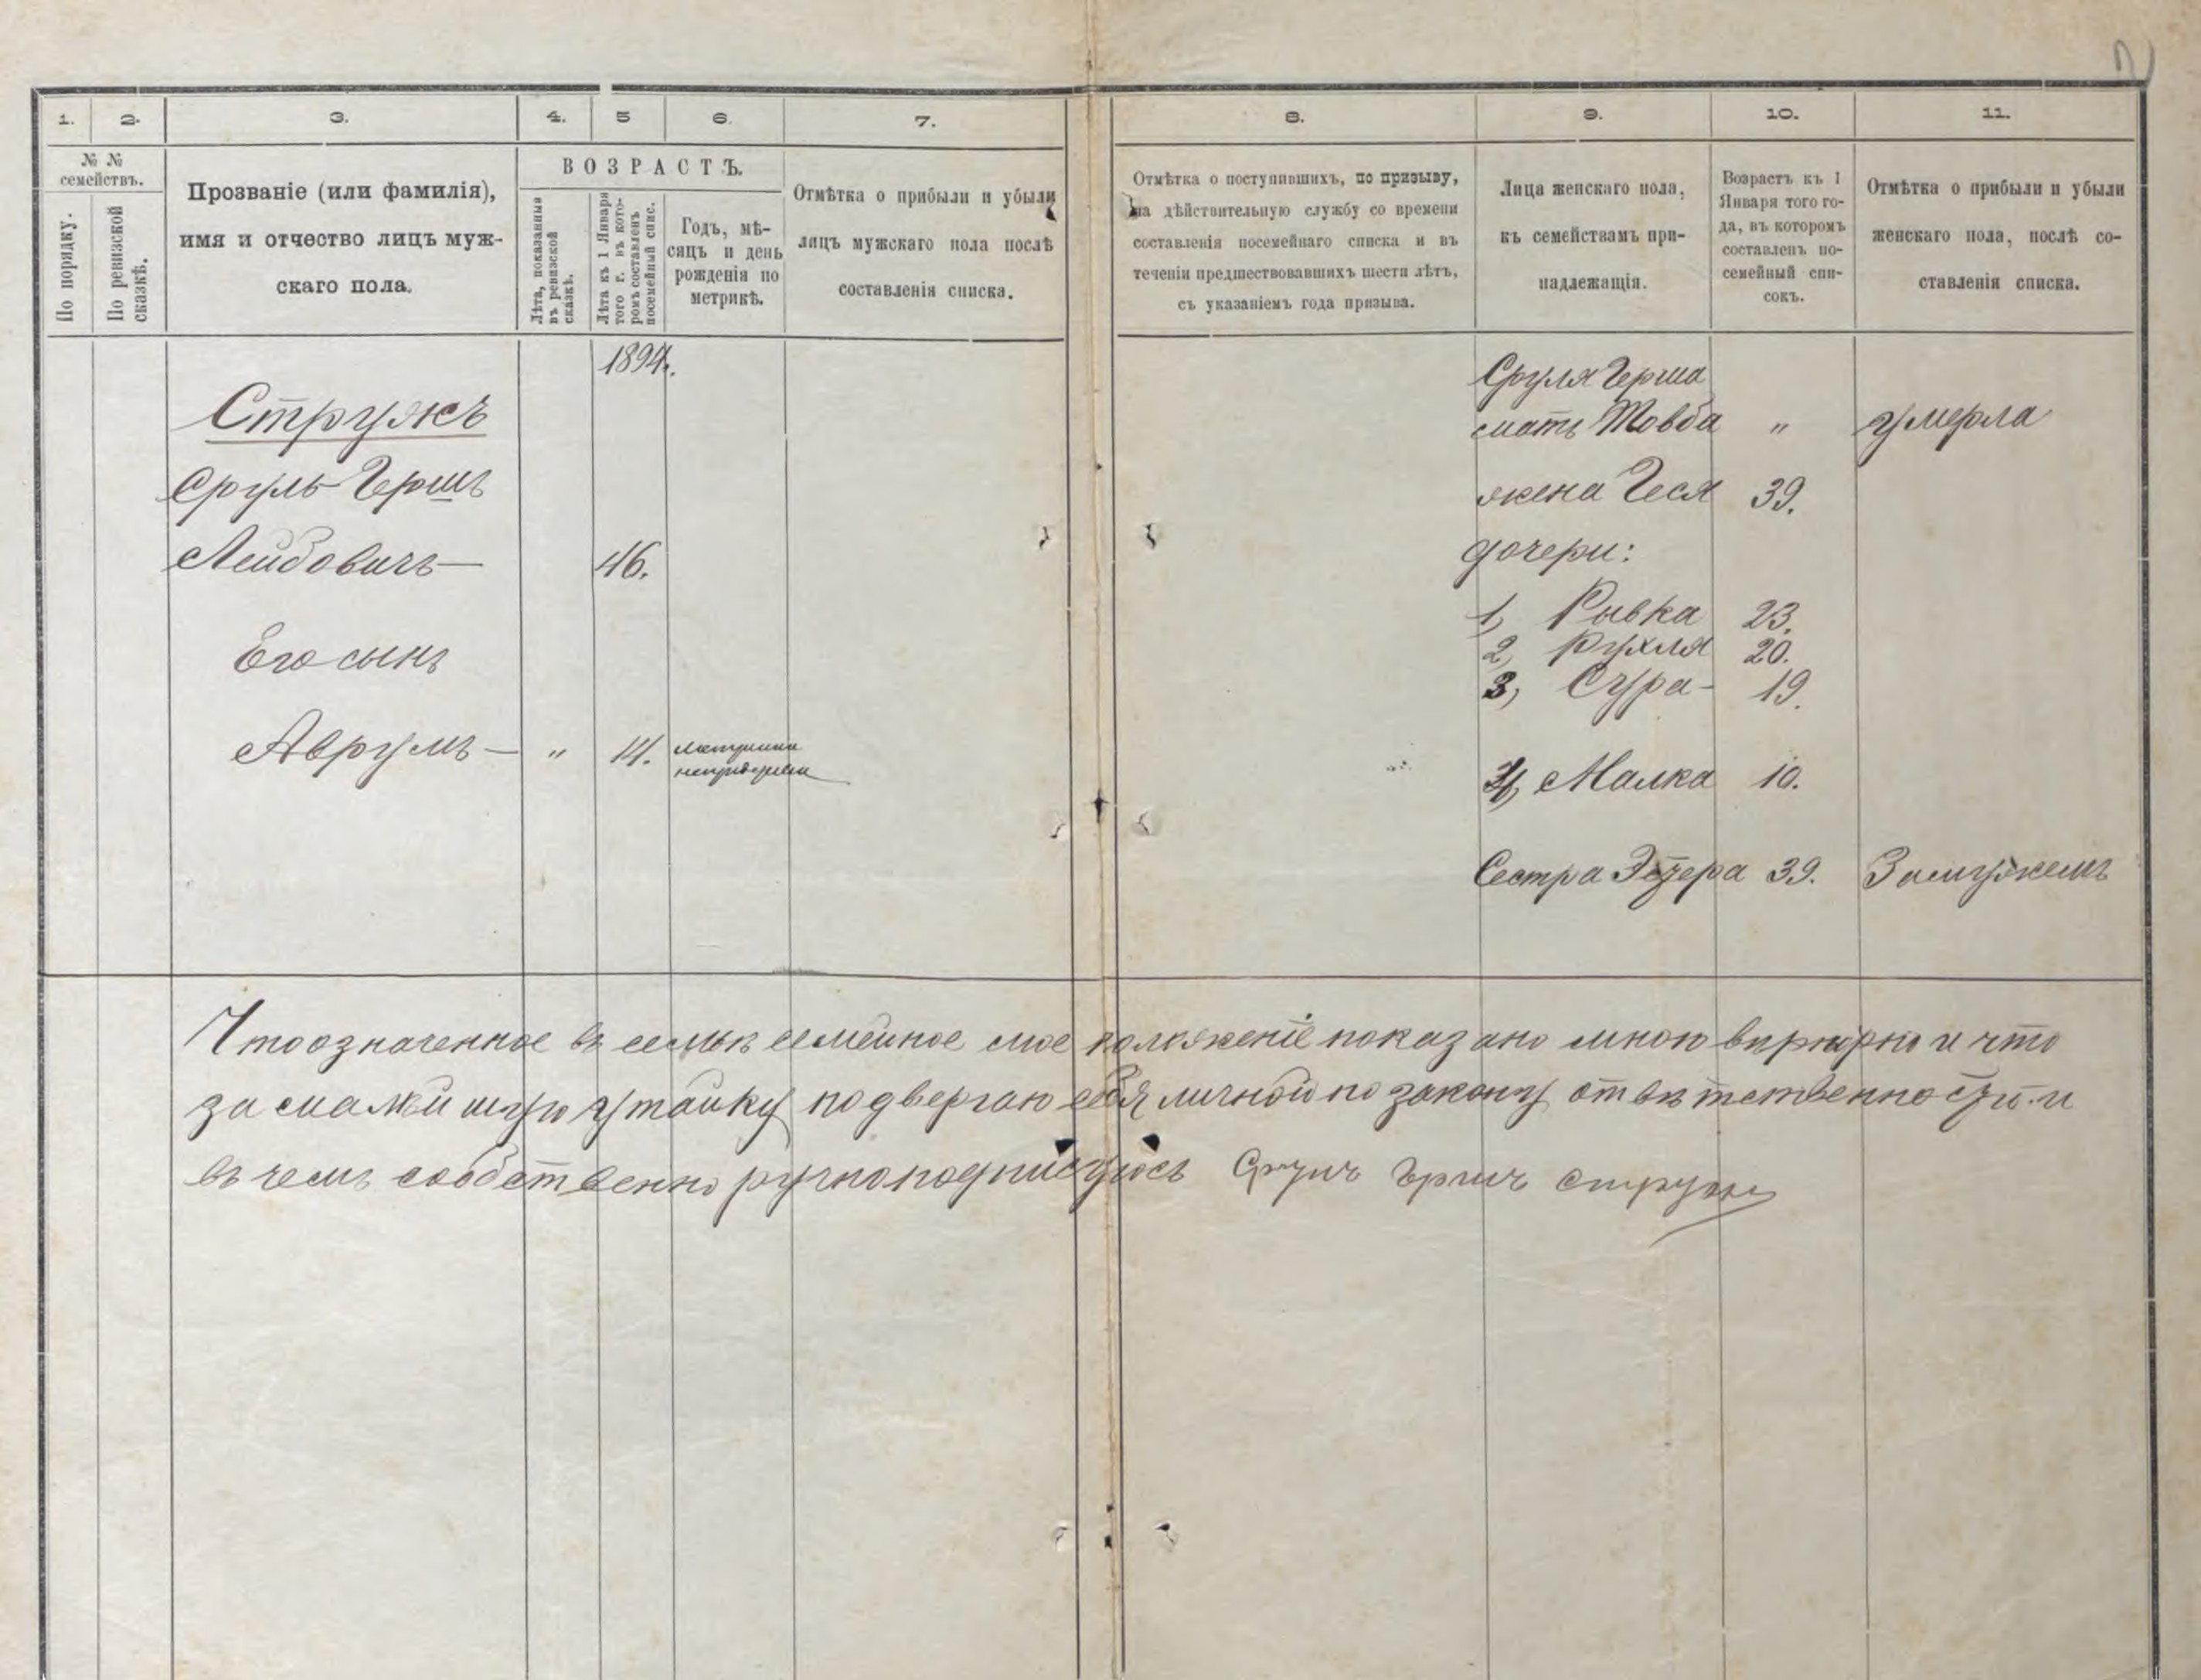 1. 2. 3. 4. 5 6. 7. 8. 9. 10. 11.
№ №
семействъ.
По порядку.
По ревизской
сказкѣ.
Прозваніе (или фамилія),
имя и отчество лицъ муж-
скаго пола.
ВОЗРАСТЪ.
Лѣта, показанныя
въ ревизской
сказкѣ.
Лѣта къ 1 Января
того г. въ кото-
ромъ составленъ
посемейный спис.
Годъ, мѣ-
сяцъ и день
рожденія по
метрикѣ.
Отмѣтка о прибыли и убыли
лицъ мужскаго пола послѣ
составленія списка.
Отмѣтка о поступившихъ, по призыву,
на дѣйствительную службу со времени
составленія посемейнаго списка и въ
теченіи предшествовавшихъ шести лѣтъ,
съ указаніемъ года призыва.
Лица женскаго пола,
къ семействамъ при-
надлежащія.
Возрастъ къ 1
Января того го-
да, въ которомъ
составленъ по-
семейный спи-
сокъ.
Отмѣтка о прибыли и убыли
женскаго пола, послѣ со-
ставленія списка.
1894г.
Стружъ
Сруль Гершъ
Лейбовичъ 46.
Его сынъ
Аврумъ „ 14.
Сруля Герша
мать Товба „ умерла
жена Геся 39.
дочери:
1, Рывка 23.
2, Рухля 20.
3, Сура 19.
4, Малка 10.
Сестра Эстера 39. Замужемъ
Что означенное въ семъ семейное мое положеніе показано мною и что
за утайку подвергаю себя личной по закону отвѣтственности и
въ чемъ собственно ручно подписуюсь Герш Струж